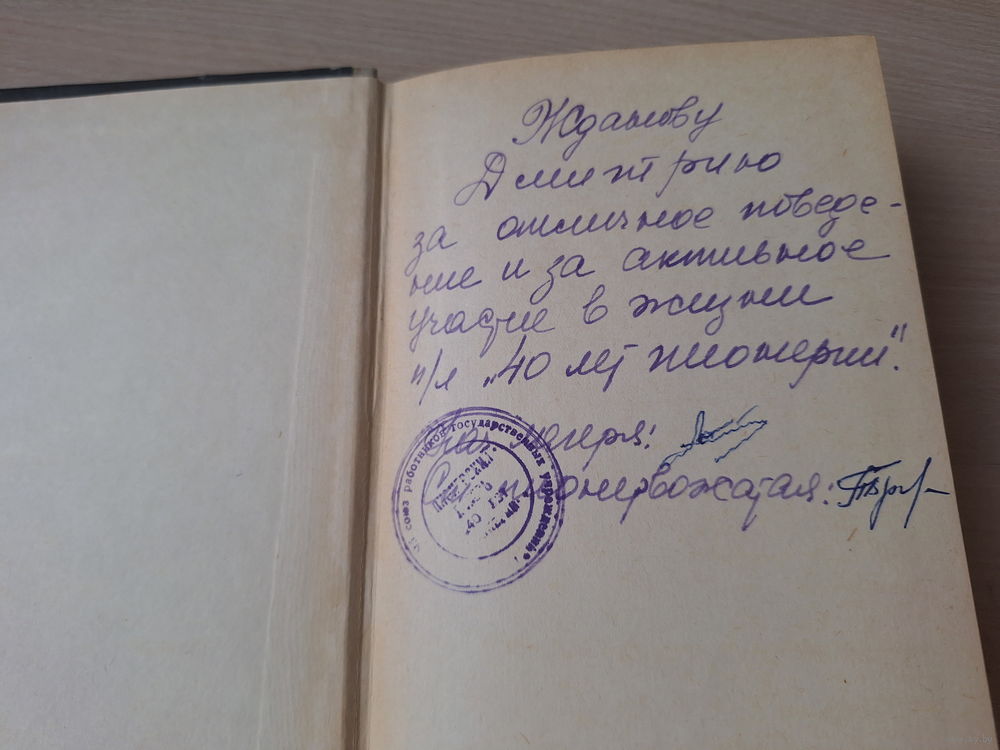 Жданову
Дмитрию
за отличное поведе-
ние и за активное
участие в жизни
п/л „40 лет пионерии".
Нач. лагеря:
Ст. пионервожатая:
союз работников государственных учреждений
40 лет